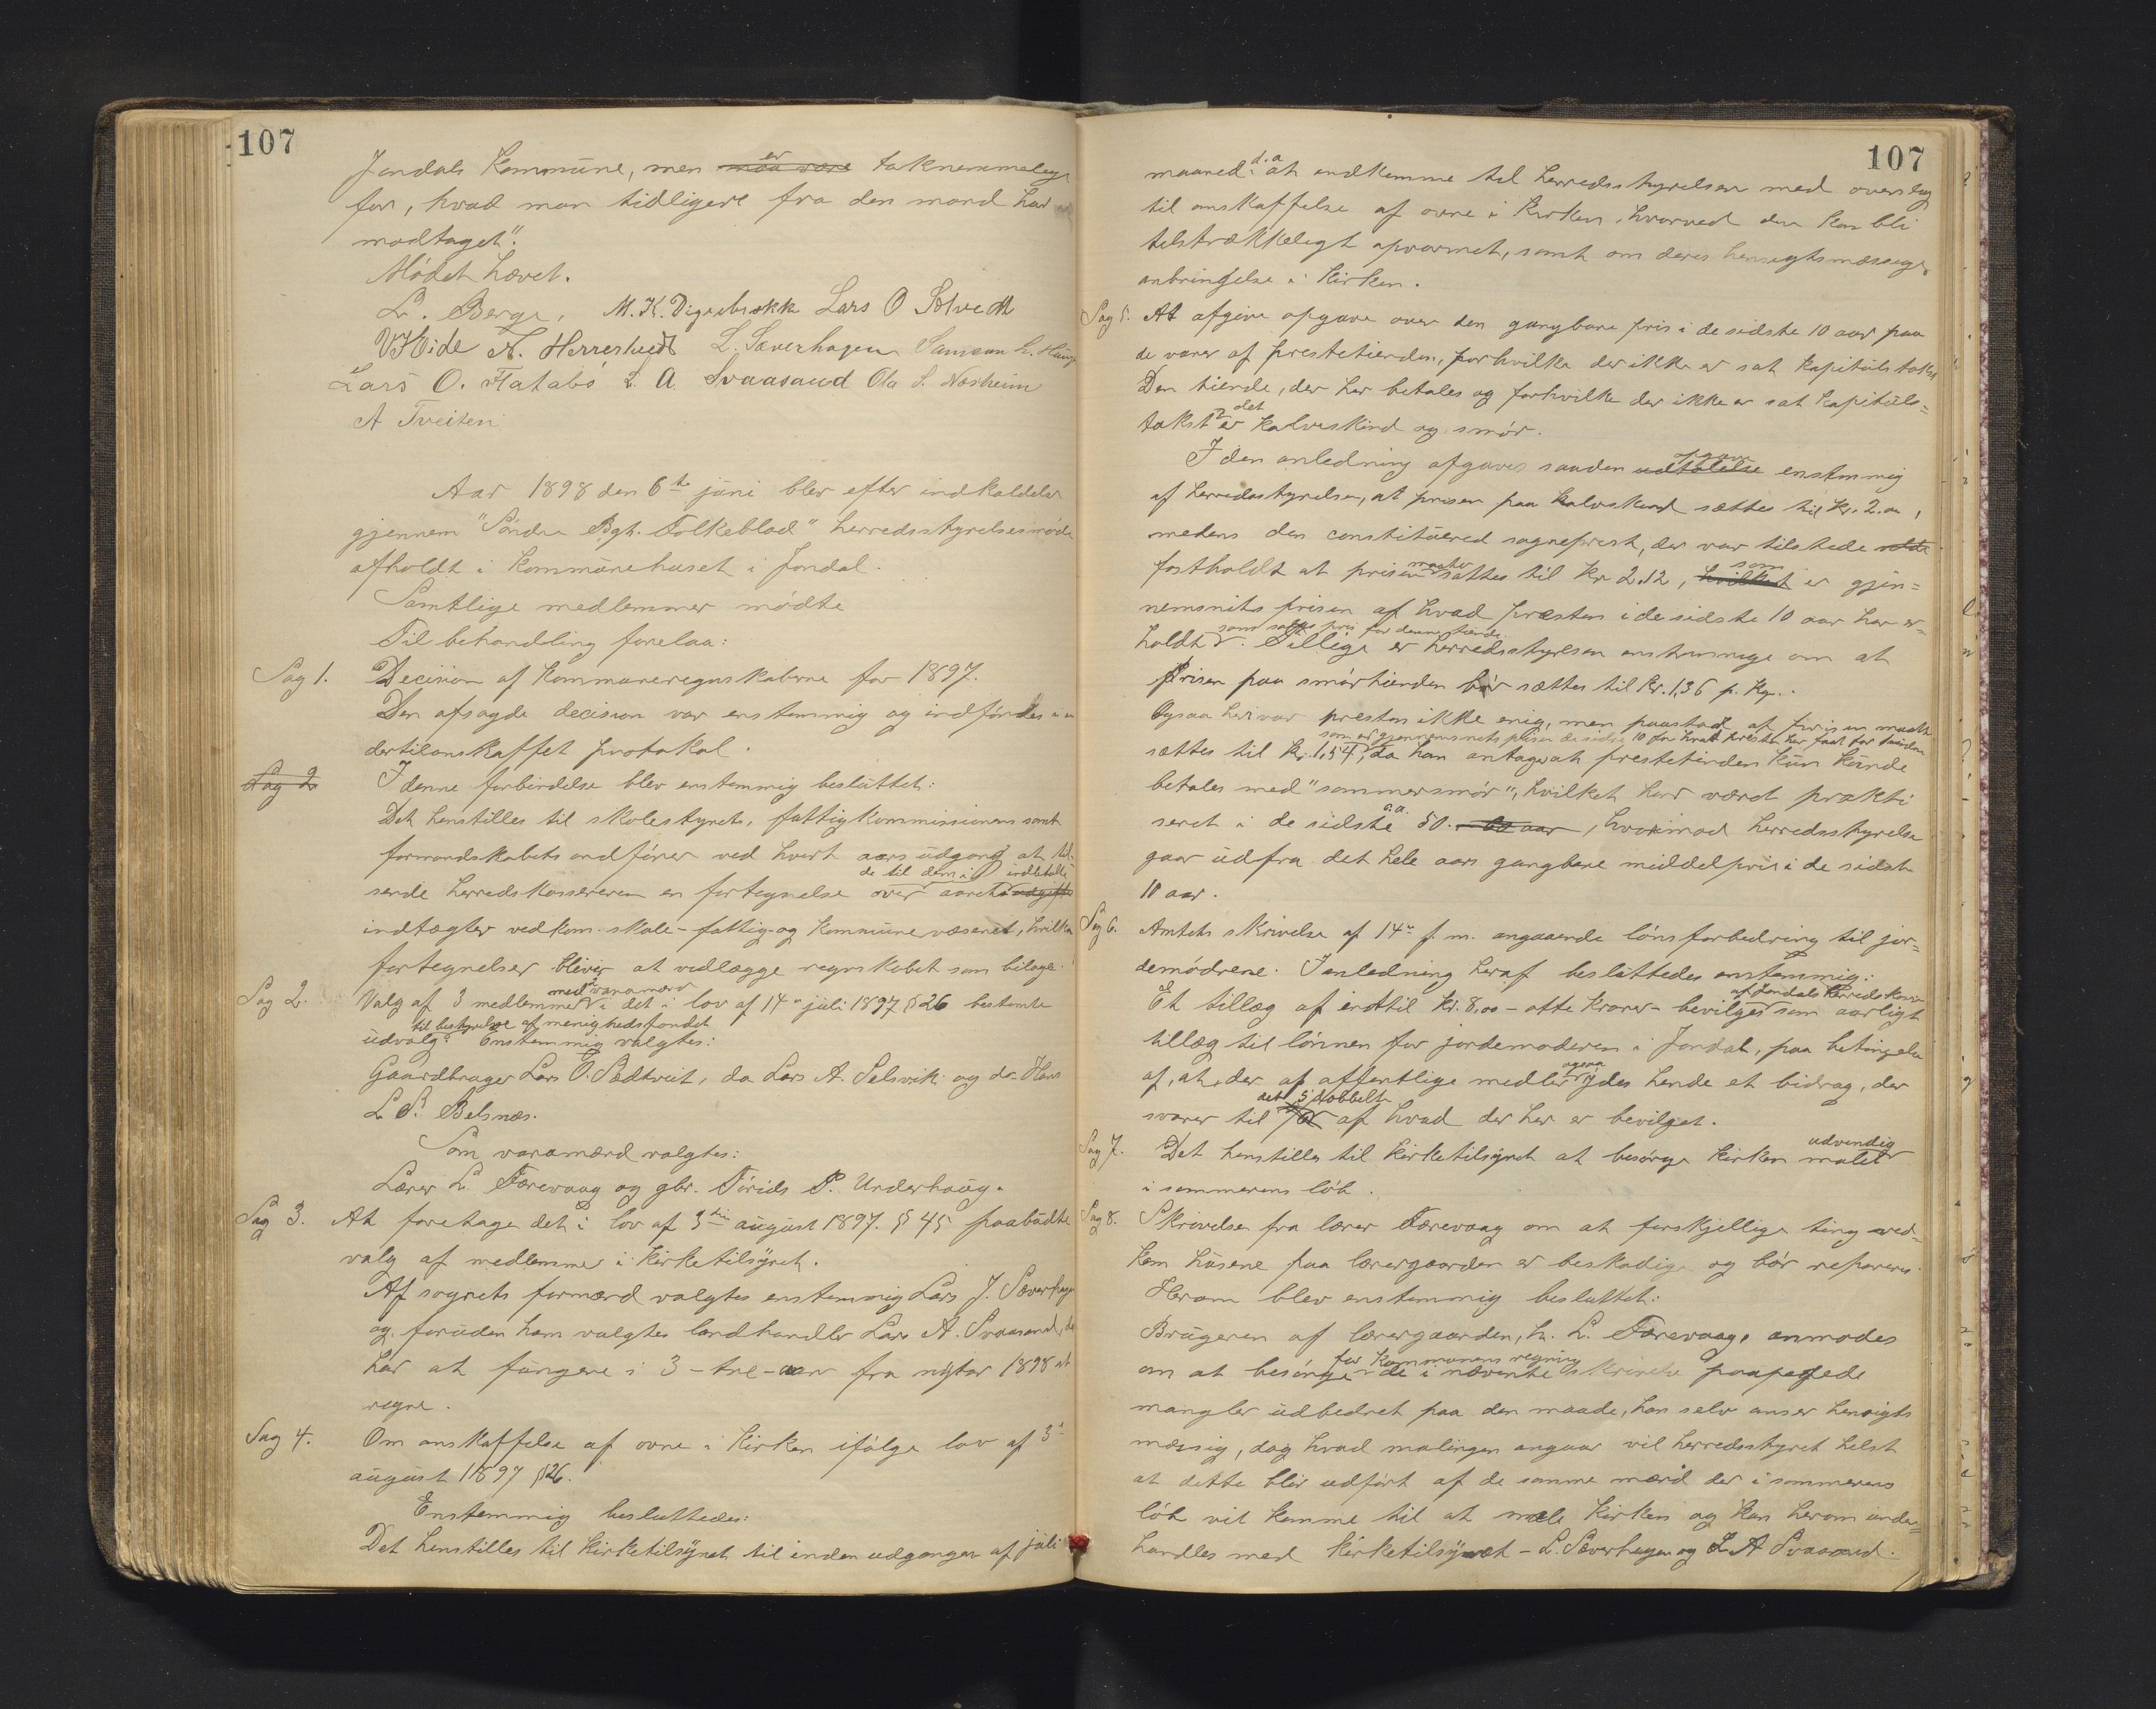 107
Jondals Kommune, men er maa være taknemmelege
for, hvad man tidligere fra den mand har
modtaget".
Mødet hævet.
L. Berge, M. K. Digrebrækk Lars O Solvedt
V Hide N. Herrestvedt L. Sæverhagen Samson L. Haug
Lars O. Flatabø L. A. Svaasand Ola S. Næsheim
A Tveiten
Aar 1898 den 6te juni blev efter indkaldelse
gjennem "Søndre Bgh. Folkeblad" herredsstyrelsesmøde
afholdt i Kommunehuset i Jondal.
Samtlige medlemmer mødte
Til behandling forelaa:
Sag 1. Decision af Kommuneregnskaberne for 1897.
Den afsagde decision var enstemmig og indførdes i en
dertil anskaffet protokol.
Sag 2 I denne forbindelse blev enstemmig besluttet:
Det henstilles til skolestyret, fattigkommissionens samt
formandskabets ordfører ved hvert aars udgang at til-
de til dem i indbetalte
sende herredskassereren en fortegnelse over aaret udgifter
indtægter vedkom. skole- fattig- og Kommunevæsenet, hvilke
fortegnelser bliver at vedlægge regnskabet som bilage.
med varamænd
Sag 2. Valg af 3 medlemmer i det i lov af 14de juli 1897 § 26 bestemte
til bestyrelse af menighedsfondet
udvalg. Enstemmig valgtes:
Gaardbruger Lars O. Sædtveit, do Lars A. Selsvik og do Hans
L. S. Belsnæs.
Som varamænd valgtes:
Lærer L. Færevaag og gbr. Torids P. Underhaug.
Sag 3. At foretage det i lov af 3die august 1897. § 45 paabudte
valg af medlemmer i Kirketilsynet.
Af sognets formænd valgtes enstemmig Lars J. Sæverhagen
og foruden ham valgtes landhandler Lars A. Svaasand, de
har at fungere i 3 - tre - aar fra nytar 1898 at
regne.
Sag 4. Om anskaffelse af ovne i Kirken ifølge lov af 3d
august 1897 § 26.
Enstemmig besluttedes:
Det henstilles til Kirketilsynet til inden udgangen af juli
107
maaned d. a. at indkomme til herredsstyrelsen med overslag
til anskaffelse af ovne i Kirken, hvorved den kan bli
tilstrækkeligt opvarmet, samt om deres hensigtsmæssige
anbringelse i Kirken.
Sag 5. At afgive opgave over den gangbare pris i de sidste 10 aar paa
de varer af prestetienden, for hvilke der ikke er sat Kapitulstakst
Den tiende, der her betales og for hvilke der ikke er sat Kapituls-
takst er det kalveskind og smør.
I den anledning afgaves saadan udtalelse opgave enstemmig
af herredsstyrelsen, at prisen paa kalveskind sættes til Kr. 2.00,
medens den constituered sogneprest, der var tilstede
fastholdt at prisen maatte sættes til Kr 2.12, hvilket som er gjen-
nemsnits prisen af hvad præsten i de sidste 10 aar har er-
som salgs pris for denne tiende
holdt. Tillige er herredsstyrelsen enstemmige om at
prisen paa smørtienden bør sættes til Kr. 1,36 p. Kg.
Ogsaa her var presten ikke enig, men paastod at prisen maatte
som er gjennemsnits prisen de sidste 10 for hvad presten har faat for tienden
sættes til Kr. 1,54, da han antager at prestetienden kun kunde
betales med "sommersmør", hvilket har været prakti
seret i de sidste o.a. 50. - 60 aar, hvorimod herredsstyrelsen
gaar ud fra det hele aars gangbare middelpris i de sidste
10 aar.
Sag 6. Amtets skrivelse af 14de f. m. angaaende lønsforbedring til jor-
demødrene. I anledning heraf besluttedes enstemmig:
af Jondals herredskasse
Et tillæg af indtil Kr. 8,00 - otte kroner - bevilges som aarligt
tillæg til lønnen for jordemoderen i Jondal, paa betingelse
af, at der af offentlige midler ogsaa ydes hende et bidrag, der
det dobbelte
svarer til af hvad der her er bevilget.
Sag 7. Det henstilles til Kirketilsynet at besørge Kirken malet udvendig
i sommerens løb.
Sag 8. Skrivelse fra lærer Færevaag om at forskjellige ting ved-
kom husene paa lærergaarden er beskadige og bør repareres.
Herom blev enstemmig besluttet:
Brugeren af lærergaarden, hr. L. Færevaag, anmodes
for Kommunens regning
om at besørge de i nævnte skrivelse paapegede
mangler udbedret paa den maade, han selv anser hensigts
mæssig, dog hvad malingen angaar vil herredsstyret helst
at dette blir udført af de samme mænd der i sommerens
løb vil komme til at male Kirken og kan herom under-
handles med Kirketilsynet - L. Sæverhagen og L A Svaasand.